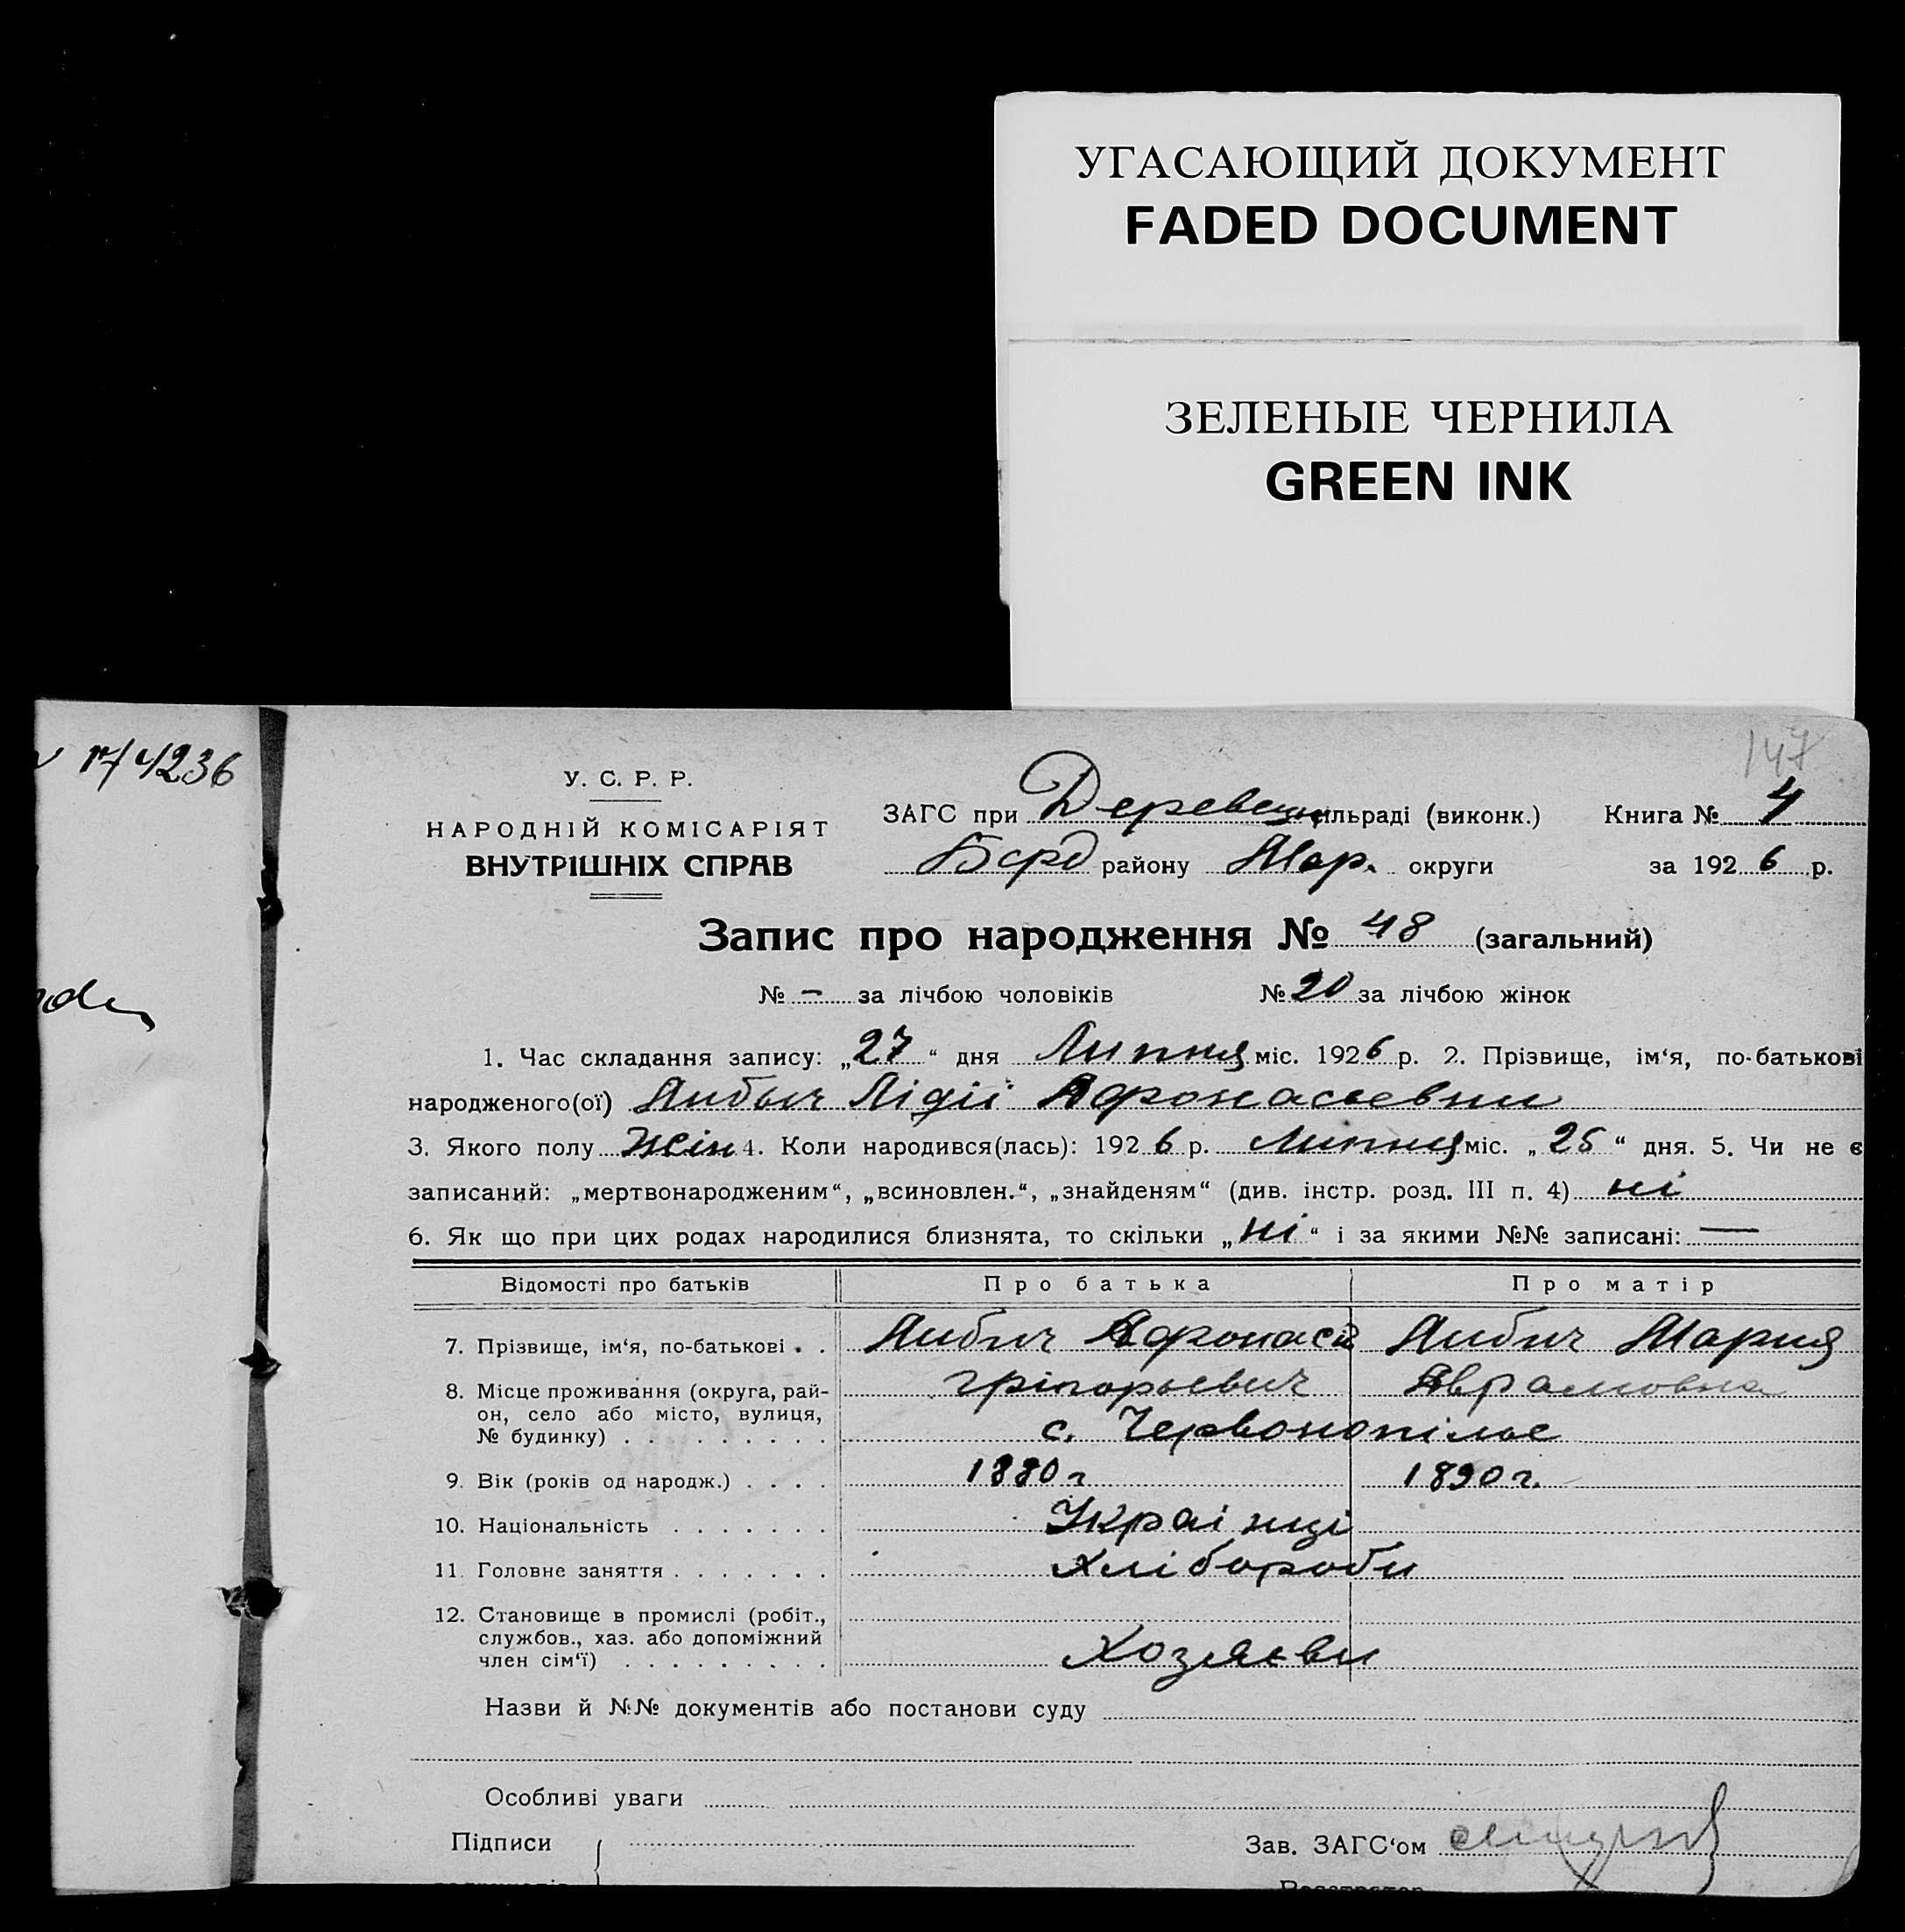 УГАСАЮЩИЙ ДОКУМЕНТ
FADED DOCUMENT
ЗЕЛЕНЫЕ ЧЕРНИЛА
GREEN INK
174236
147
У. С. Р. Р.
НАРОДНІЙ КОМІСАРІЯТ
ВНУТРІШНІХ СПРАВ
ЗАГС при ільраді (виконк.) Книга № 4
Берд району Мар. округи за 1926 р.
Запис про народження № 48 (загальний)
№ — за лічбою чоловіків № 20 за лічбою жінок
1. Час складання запису: „27“ дня Липня міс. 1926 р. 2. Прізвище, ім‘я, по-батькові
народженого(ої) Лидії Афонасьевни
3. Якого полу Жін 4. Коли народився(лась): 1926 р. Липня міс. „25“ дня. 5. Чи не є
записаний: „мертвонародженим“, „всиновлен.“, „знайденям“ (див. інстр. розд. III п. 4) ні
6. Як що при цих родах народилися близнята, то скільки „ні“ і за якими №№ записані: —
Відомості про батьків Про батька Про матір
7. Прізвище, ім‘я, по-батькові . . Афонасій Мария
8. Місце проживання (округа, рай- Грігорьевич Аврамовна
он, село або місто, вулиця,
№ будинку) . . . . . . . . . с. Червонопілье
9. Вік (років од народж.) . . . . 1880 г 1890 г.
10. Національність . . . . . . . Украінці
11. Головне заняття . . . . . . . Хлібороби
12. Становище в промислі (робіт.,
службов., хаз. або допоміжний
член сім‘ї) . . . . . . . . . Хозяєви
Назви й №№ документів або постанови суду
Особливі уваги
Підписи Зав. ЗАГС‘ом